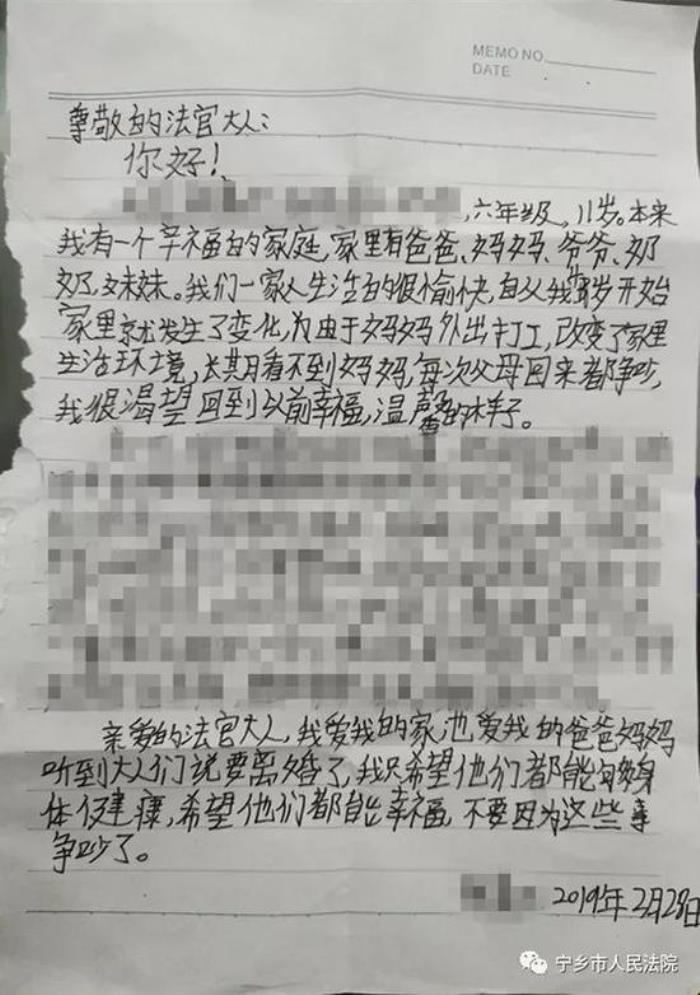 MEMO NO.
DATE
尊敬的法官大人:
你好!
,六年级,11岁。本来
我有一个辛福的的家庭,家里有爸爸、妈妈、爷爷、奶
奶,妹妹。我们一家人生活的很愉快,自从我岁开始
家里就发生了变化,为由于妈妈外出打工,改变了家里
生活环境,长期看不到妈妈,每次父母回来都争吵,
我很渴望回到以前幸福,温馨的样子。
亲爱的法官大人,我爱我的家,也爱我的爸爸妈妈
听到大人们说要离婚了,我只希望他们都能够身
体健康,希望他们都能幸福,不要因为这些事
争吵了。
2019年2月28日
宁乡市人民法院